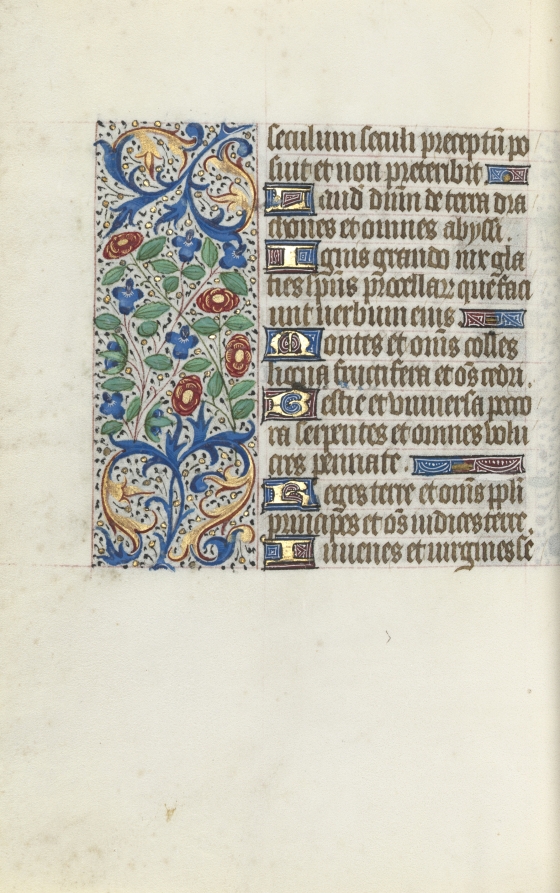 seculum seculi preceptū po
suit et non preteribit
Laud dnm̄ de terra dra
cones et omnes abyssi.
Ignis grando nix gla
ties spūs procellarꝫ que faci
unt uerbum eius
Montes et om̄s colles
ligna fructifera et os̄ cedri.
Bestie et vniuersa peco
ra serpentes et omnes volu
cres pennate.
Reges terre et om̄s ppli
principes et os̄ iudices terre
Iuuenes et uirgines se